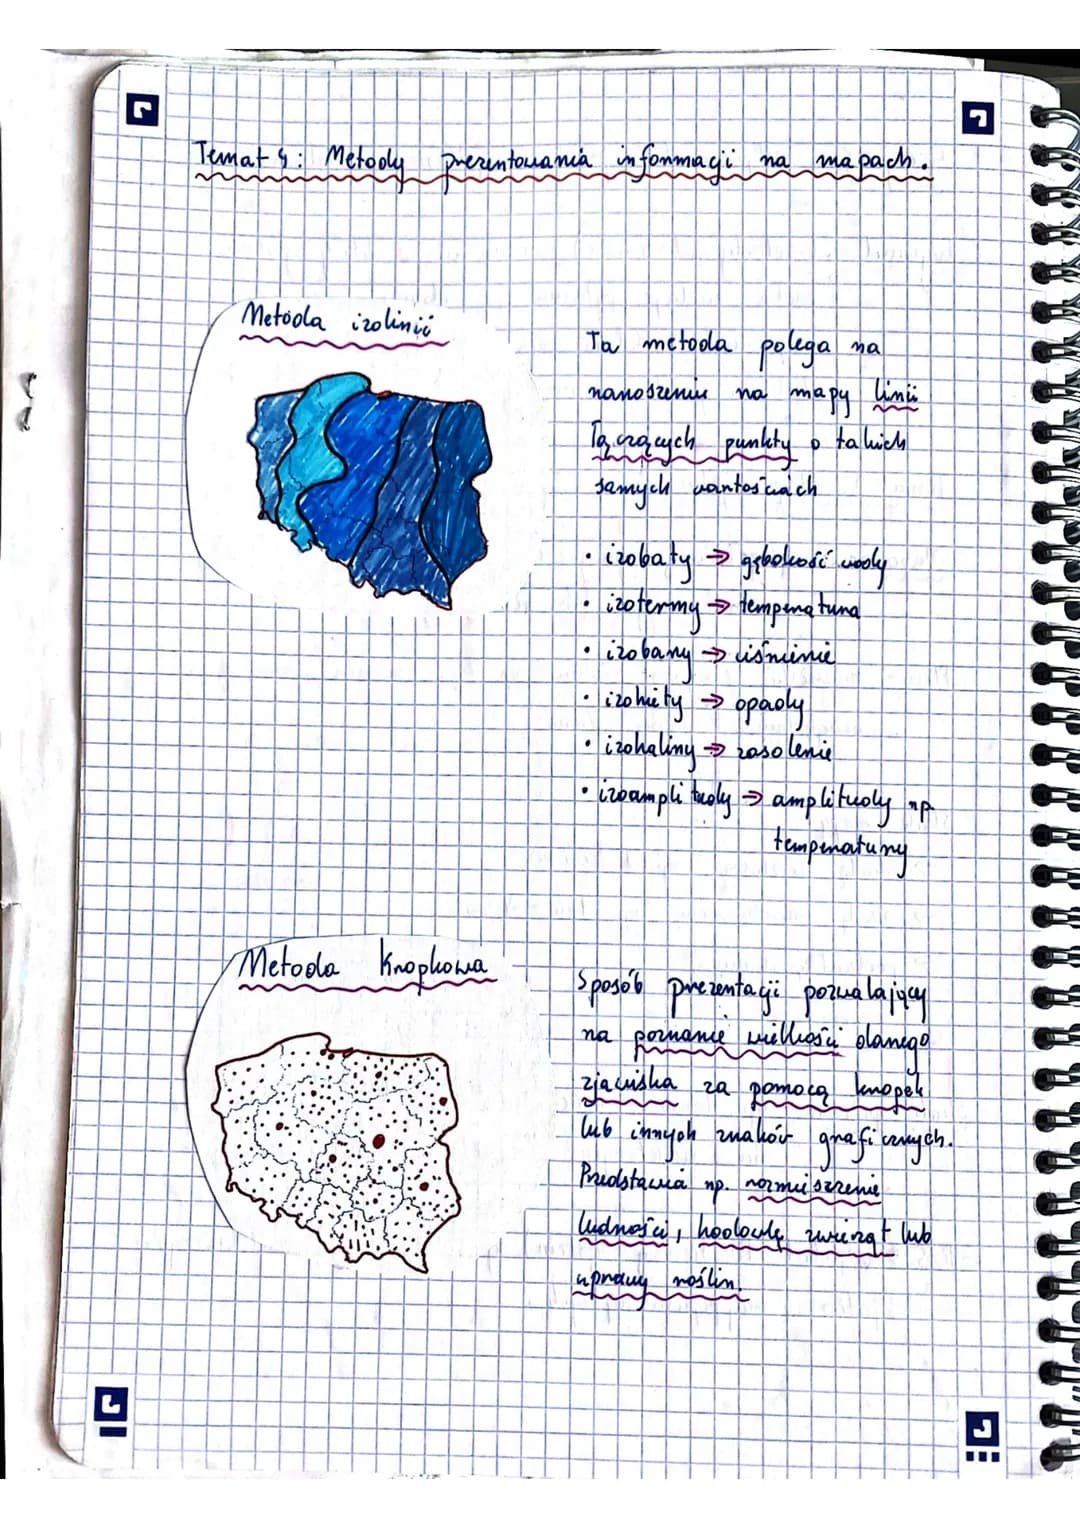 Temat 4: Metody prezentowania informacji na mapach.
Metoda izolinii
Ta metoda polega na
nanoszeniu na mapy linii
łączących punkty o takich
samych wartościach
• izobaty → głębokość wody
• izotermy → temperatura
• izobary → ciśnienie
• izohiety → opady
• izohaliny → zasolenie
• izoamplitudy → amplitudy np.
temperatury
Metoda kropkowa
Sposób prezentacji pozwalający
na poznanie wielkości danego
zjawiska za pomocą kropek
lub innych znaków graficznych.
Przedstawia np. rozmieszczenie
ludności, hodowlę zwierząt lub
uprawy roślin.